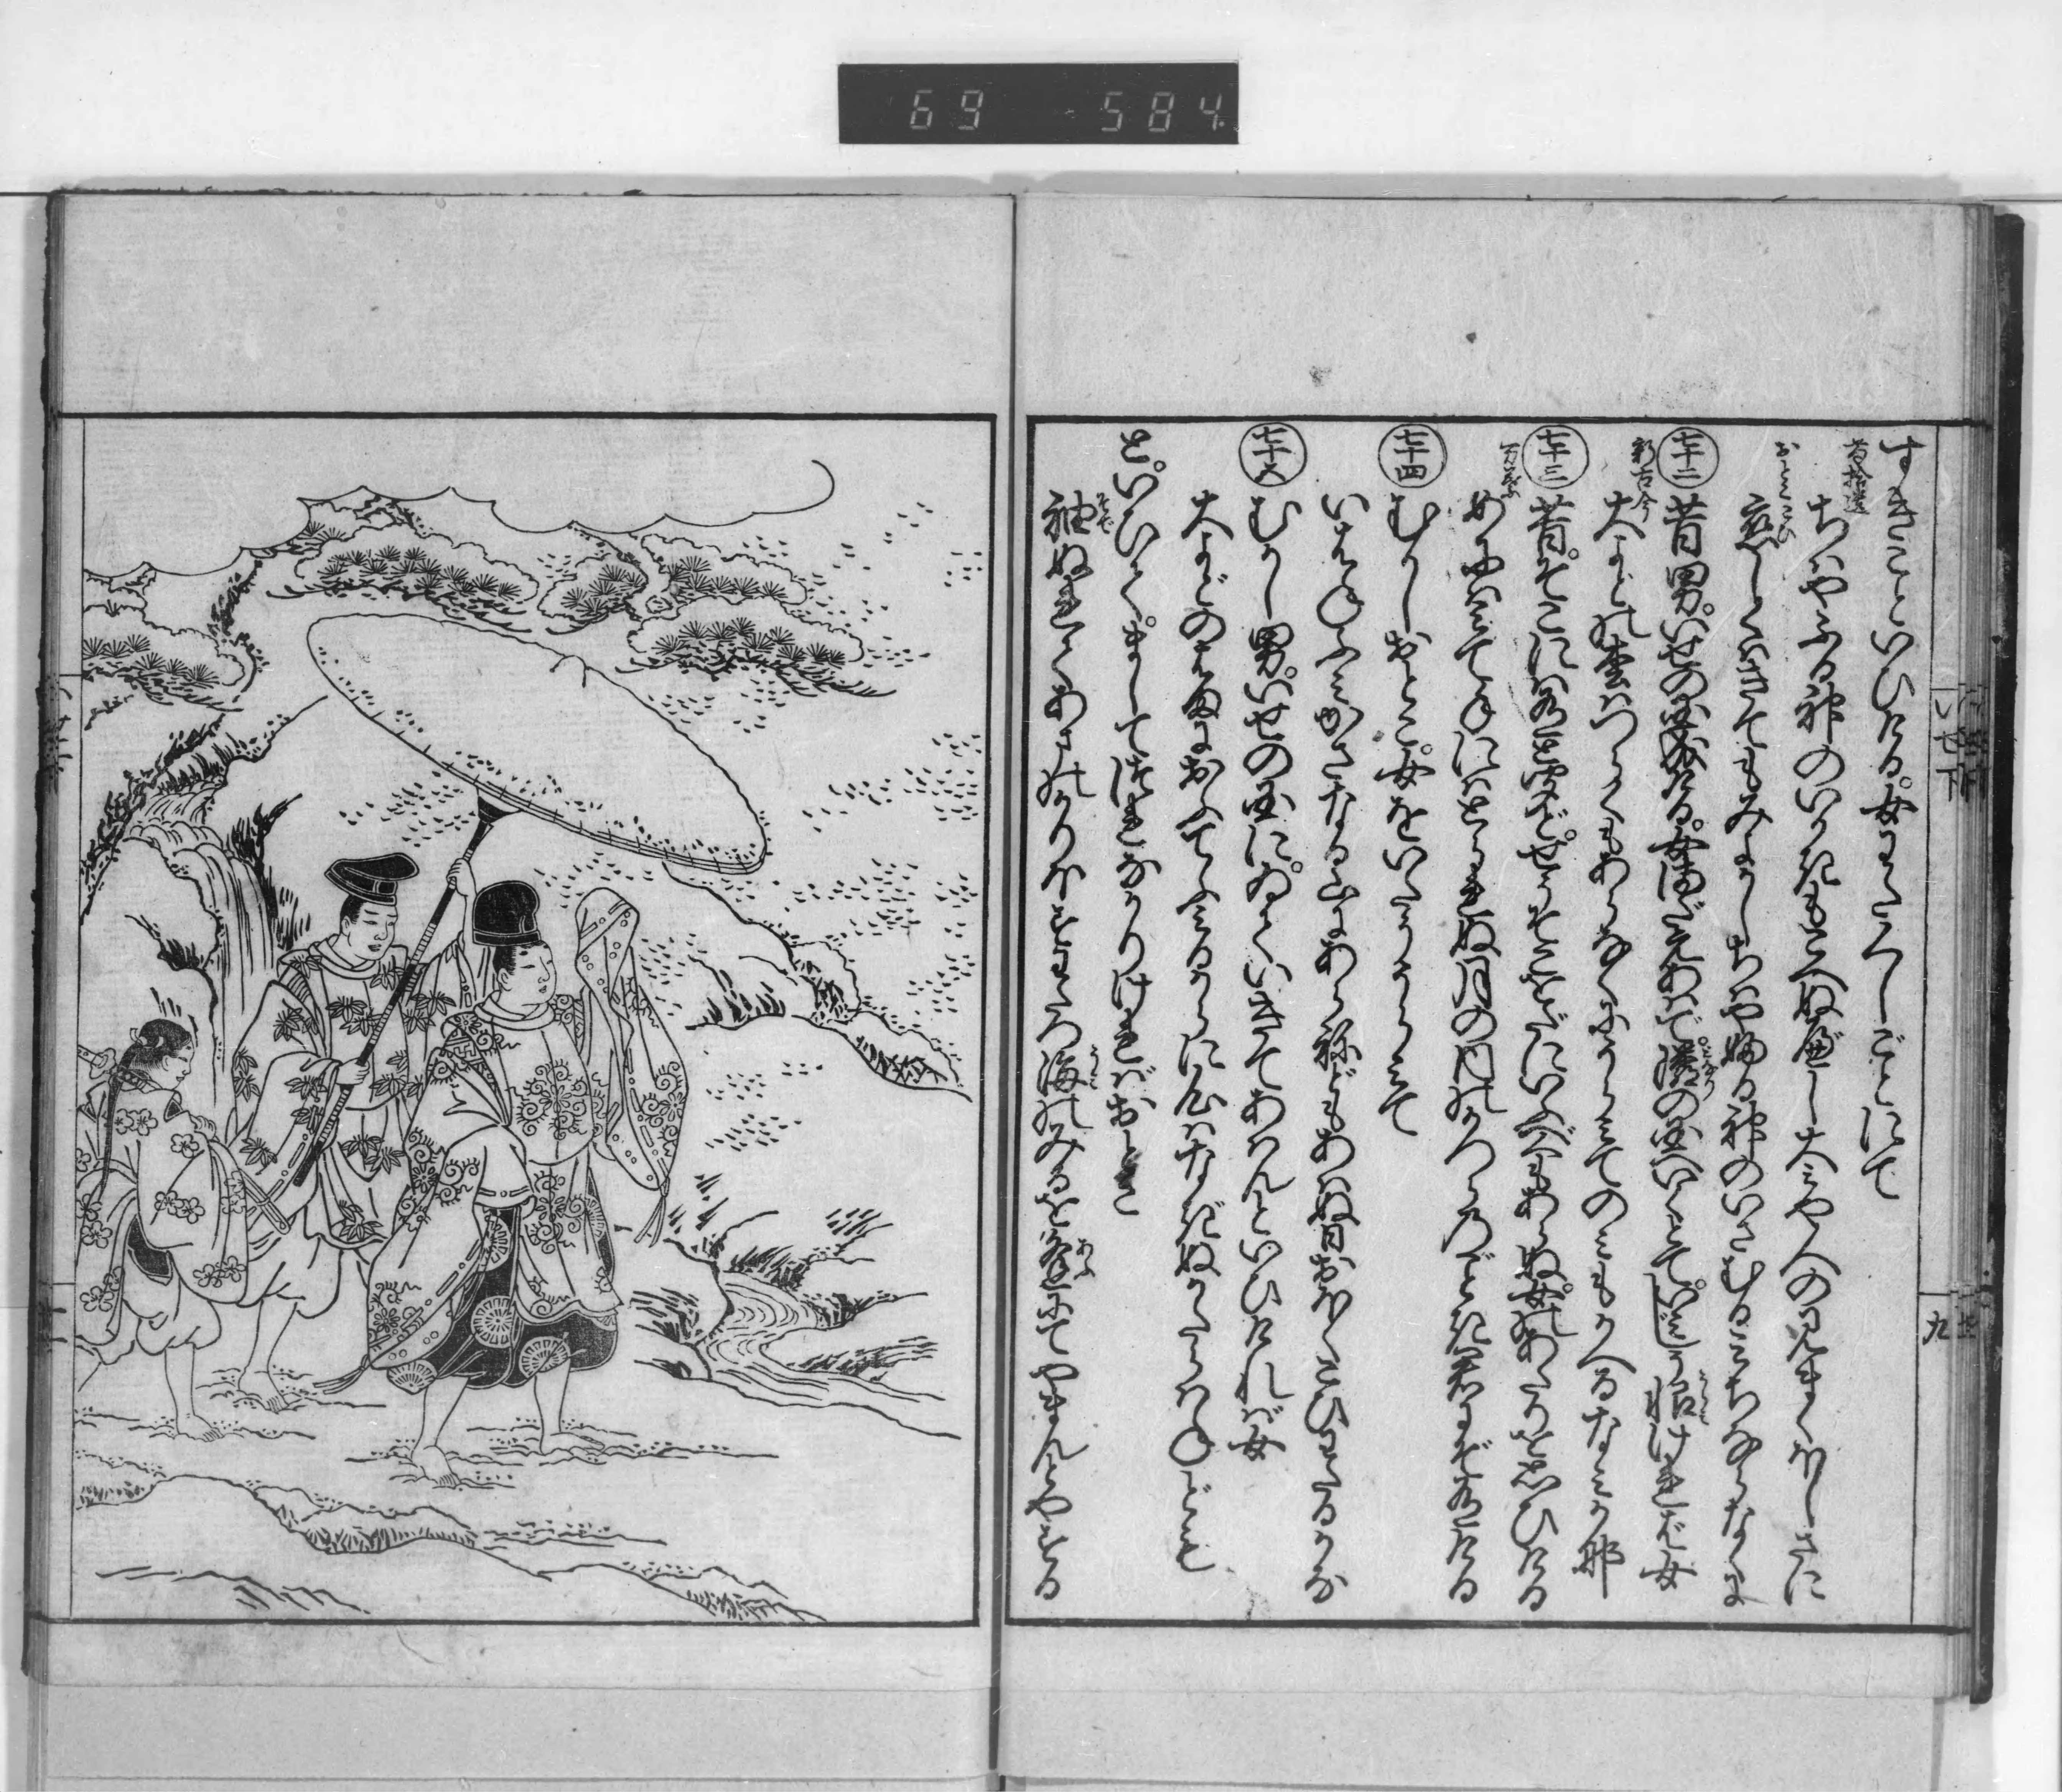 69 584
すきこといひける。女わたくしごとにて
拾遺
ちはやふる神のいかきもこえぬべし大みや人の見まくほしさに
おとこ
恋しくはきてもみよかしちはやふる神のいさむるみちならなくに
七十二 昔男。いせの国なりける。女又えあはで。隣の国へいくとて。いみじう恨ければ女
新古今
大よどの松はつらくもあらなくにうらみてのみもかへるなみか那
七十三 昔。そこにはありときけど。せうそこをだにいふべくもあらぬ。女のあたりを思ひける
万葉
めには見て手にはとられぬ月の内のかつらのごとき君にぞ有ける
七十四 むかしおとこ。女をいたううらみて
いはねふみかさなる山にあらねどもあはぬ日おほくこひわたるかな
七十五 むかし男。いせの国に。ゐていきてあらんといひければ女
大よどのはまにおふてふみるからに心はなぎぬかたらはねども
と。いひて。ましてつれなかりければおとこ
袖ぬれてあまのかりほすわたつ海のみるを逢にてやまんとやする
いせ下
九